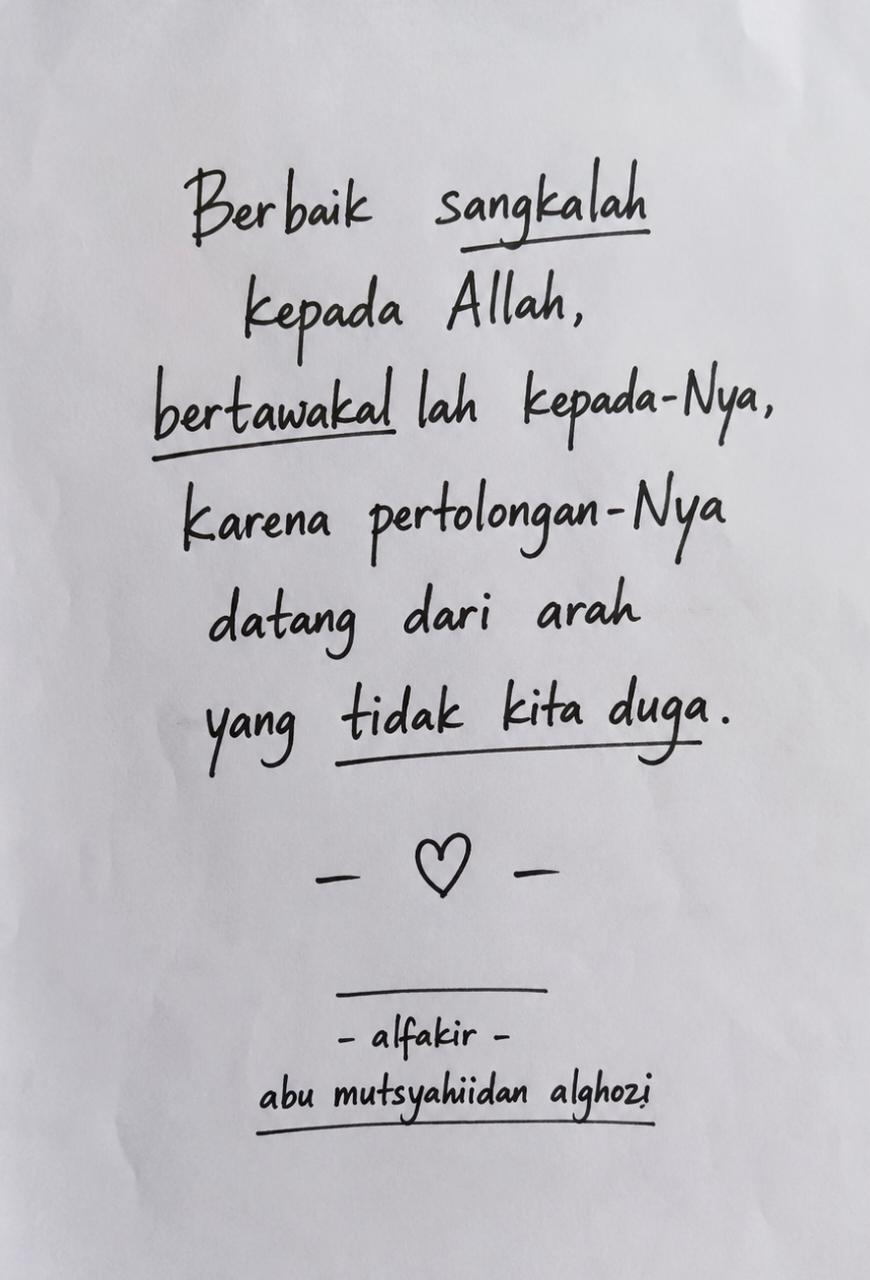 Berbaik sangkalah
kepada Allah,
bertawakal lah kepada-Nya,
karena pertolongan-Nya
datang dari arah
yang tidak kita duga.
- ♡ -
- alfakir -
abu mutsyahiidan alghozi